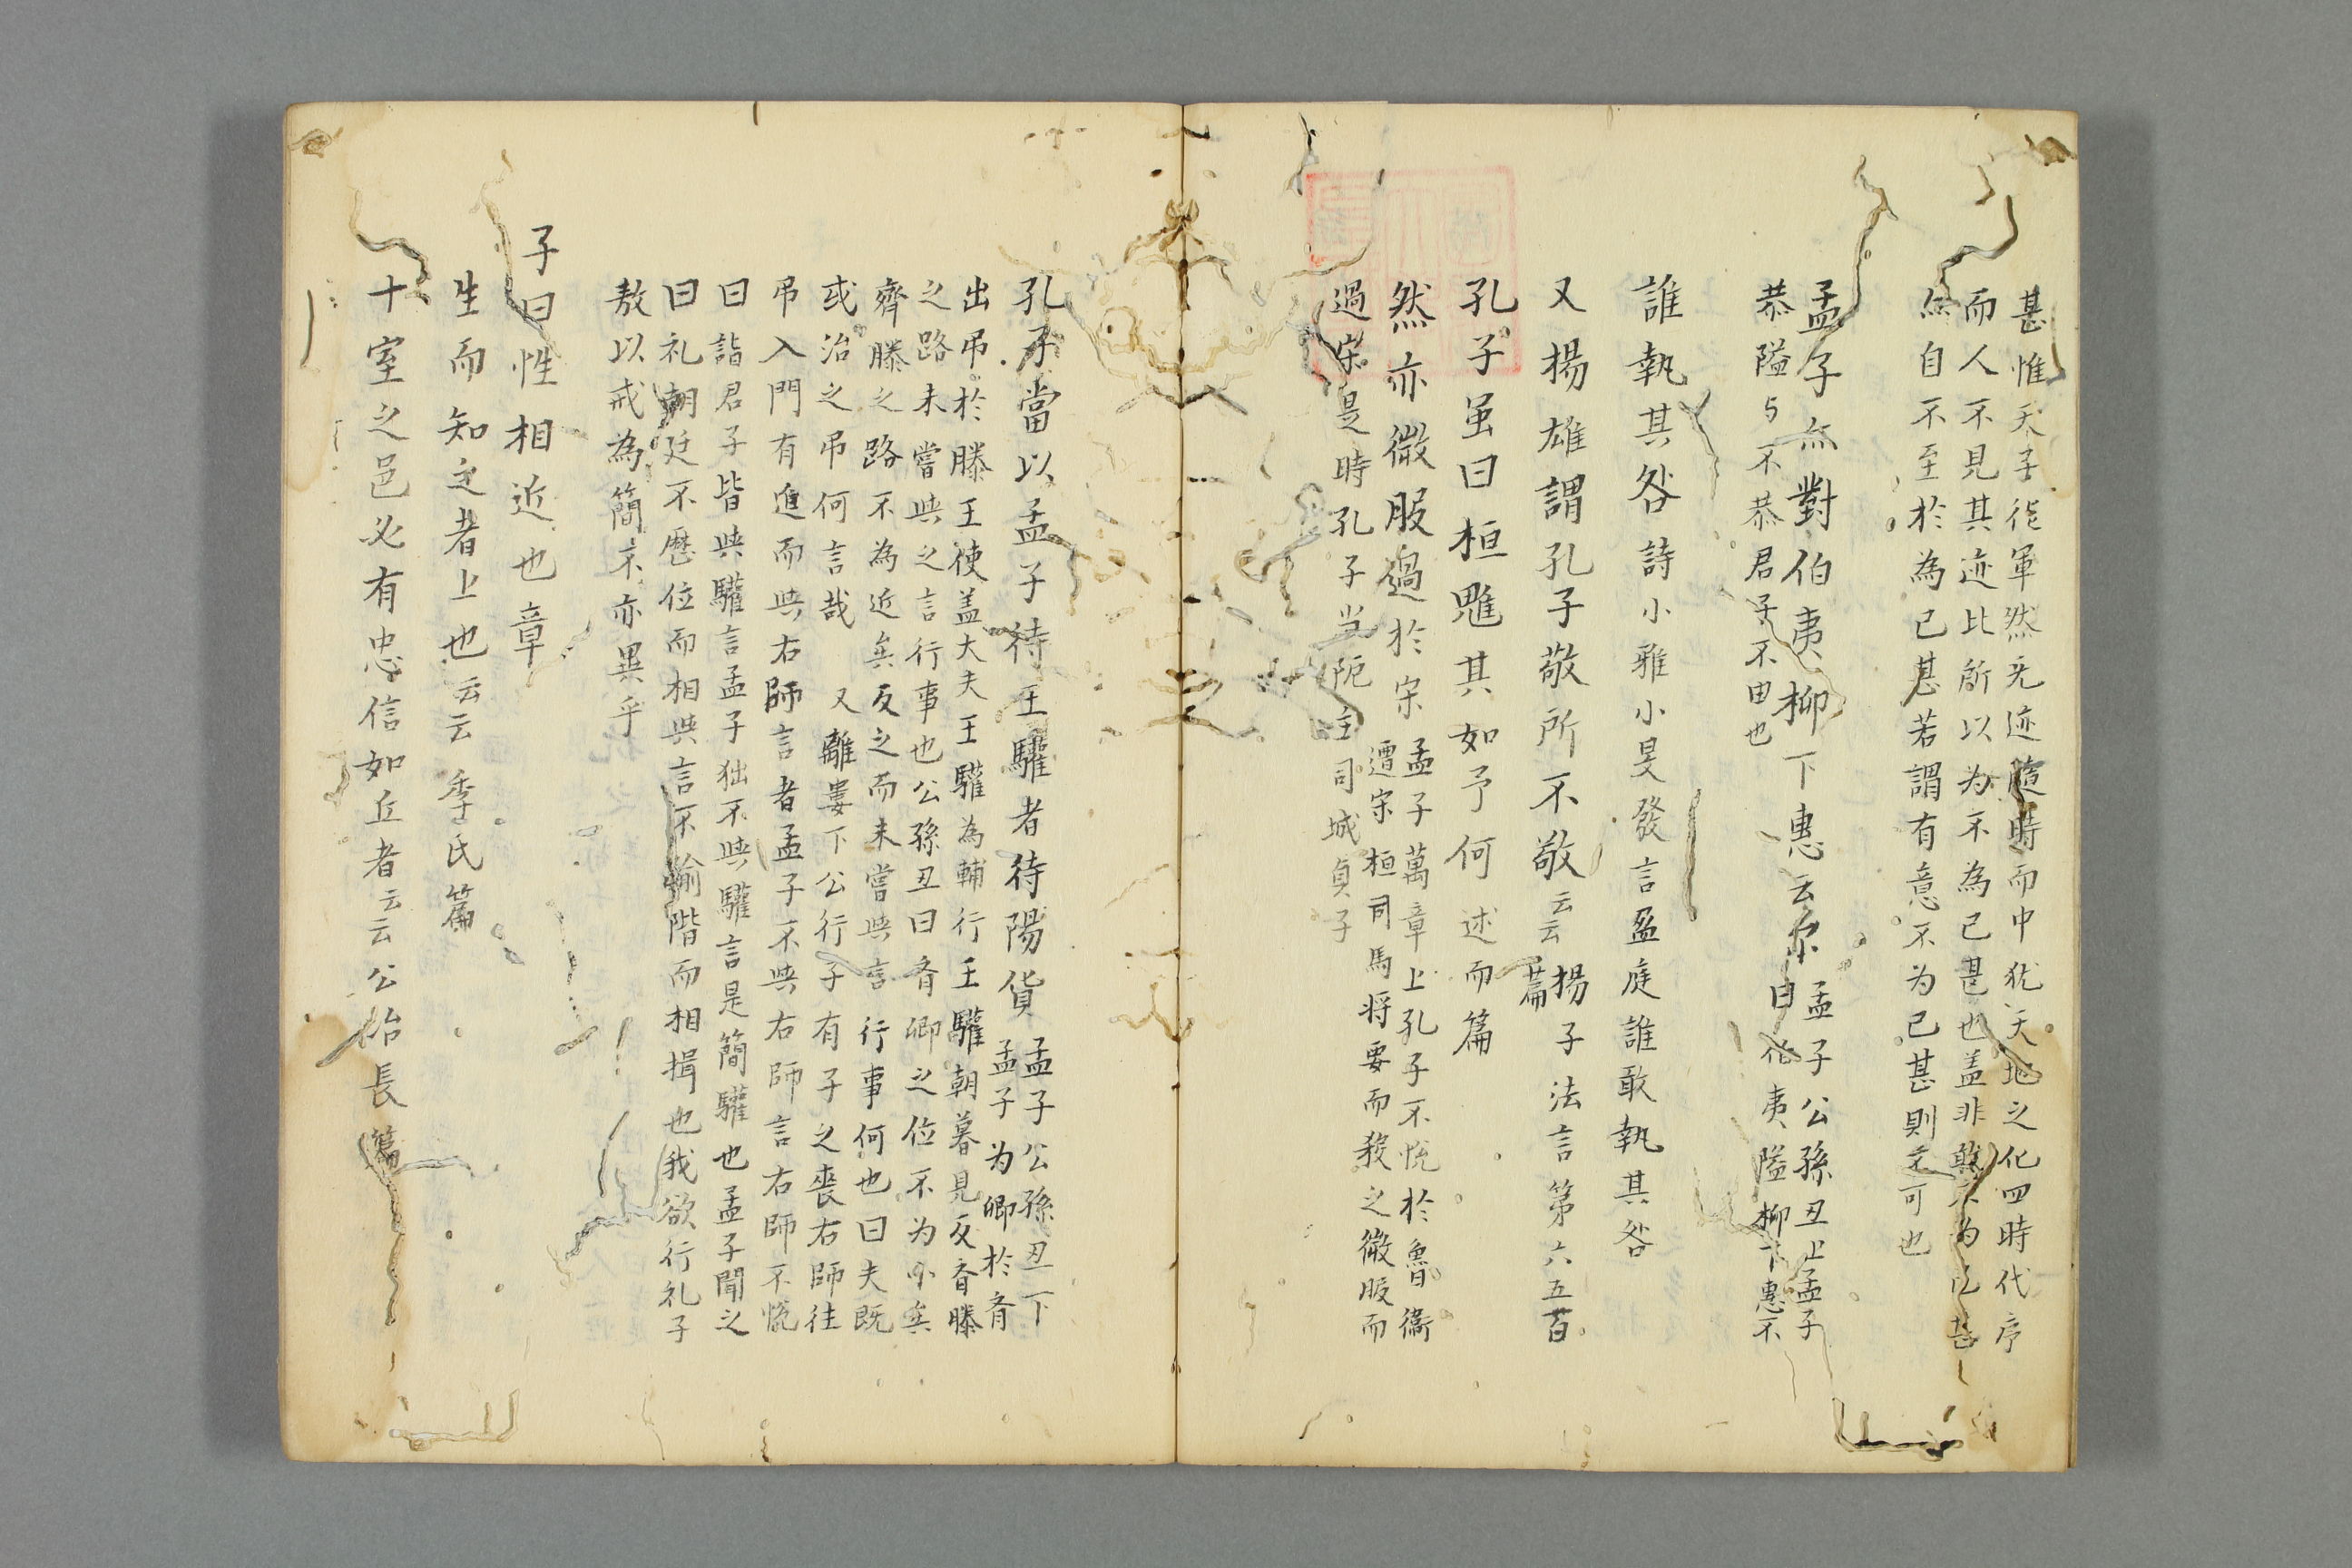 甚惟夫子従軍然无迹隨時而中犹天地之化四時代序
而人不見其迹比所以为不為已甚也盖非敢不为已甚
無自不至於為已甚若謂有意不为已甚則不可也
孟子無對伯夷柳下惠云尓 孟子公孫丑上孟子
曰伯夷隘柳下惠不
恭隘与不恭君子不由也
誰執其咎 詩小雅小旻發言盈庭誰敢執其咎
又揚雄謂孔子敬所不敬云云 揚子法言第六五百
篇
孔子虽曰桓魋其如予何 述而篇
然亦微服過於宋 孟子萬章上孔子不悅於魯衛
遭宋桓司馬将要而殺之微服而
過宋是時孔子当阨主司城貞子
孔子當以孟子待王驩者待陽貨 孟子公孫丑下
孟子为卿於斉
出弔於滕王使盖大夫王驩為輔行王驩朝暮見反斉滕
之路未嘗與之言行事也公孫丑曰斉卿之位不为小矣
齊滕之路不為近矣反之而未嘗與言行事何也曰夫既
或治之弔何言哉 又離婁下公行子有子之喪右師往
弔入門有進而與右師言者孟子不與右師言右師不悅
曰諸君子皆與驩言孟子独不與驩言是簡驩也孟子聞之
曰礼朝廷不歷位而相與言不踰階而相揖也我欲行礼子
敖以戒為簡不亦異乎
子曰性相近也章
生而知之者上也云云 季氏篇
十室之邑必有忠信如丘者云云 公冶長篇